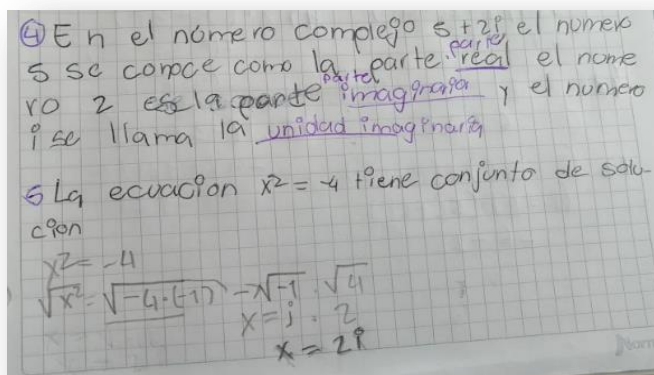 ④ En el número complejo 5 + 2i, el numero
5 se conoce como la parte parte real el nome
ro 2 es la parte parte imaginaria y el numero
i se llama la unidad imaginaria
5 La ecuación x² = -4 tiene conjunto de solu-
ción
x² = -4
√x² = √-4·(-1) - √-1 · √4
x = i · 2
x = 2i
Norma